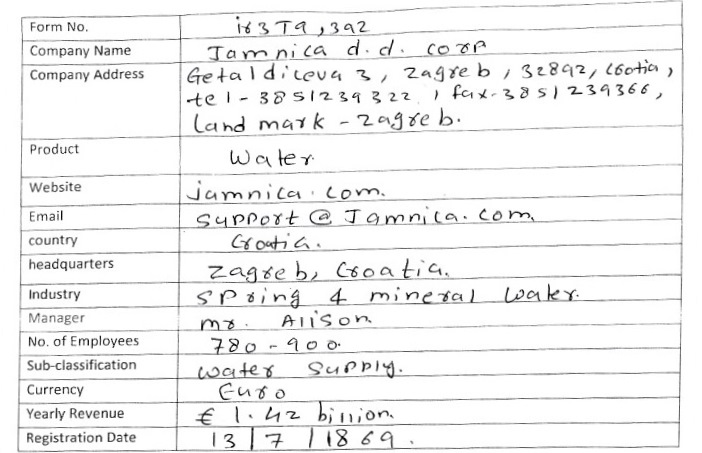 Form No. ir3T9,392
Company Name Jamnica d.d. corp
Company Address Getaldiceva 3, Zagreb, 32892, Croatia,
tel - 3851239322, fax-3851239366,
Land mark - Zagreb.
Product Water
Website jamnica.com.
Email support@Jamnica.com
country Croatia.
headquarters Zagreb, Croatia.
Industry Spring & mineral Water.
Manager mr. Alison
No. of Employees 780-900.
Sub-classification water Supply.
Currency Euro
Yearly Revenue € 1.42 billion
Registration Date 13/7/1869.